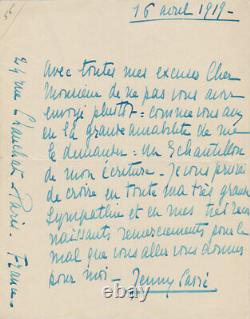 16 avril 1919 -
Avec toutes mes excuses Cher
Monsieur de ne pas vous avoir
envoyé plustot = comme vous avez
eu la grande amabilité de me
le demander = un Echantillon
de mon écriture. Je vous prie
de croire en toute ma très grande
Sympathie et en mes très reco
naissants remerciements pour le
mal que vous allez vous donner
pour moi - Jenny
24 rue - Paris. France.